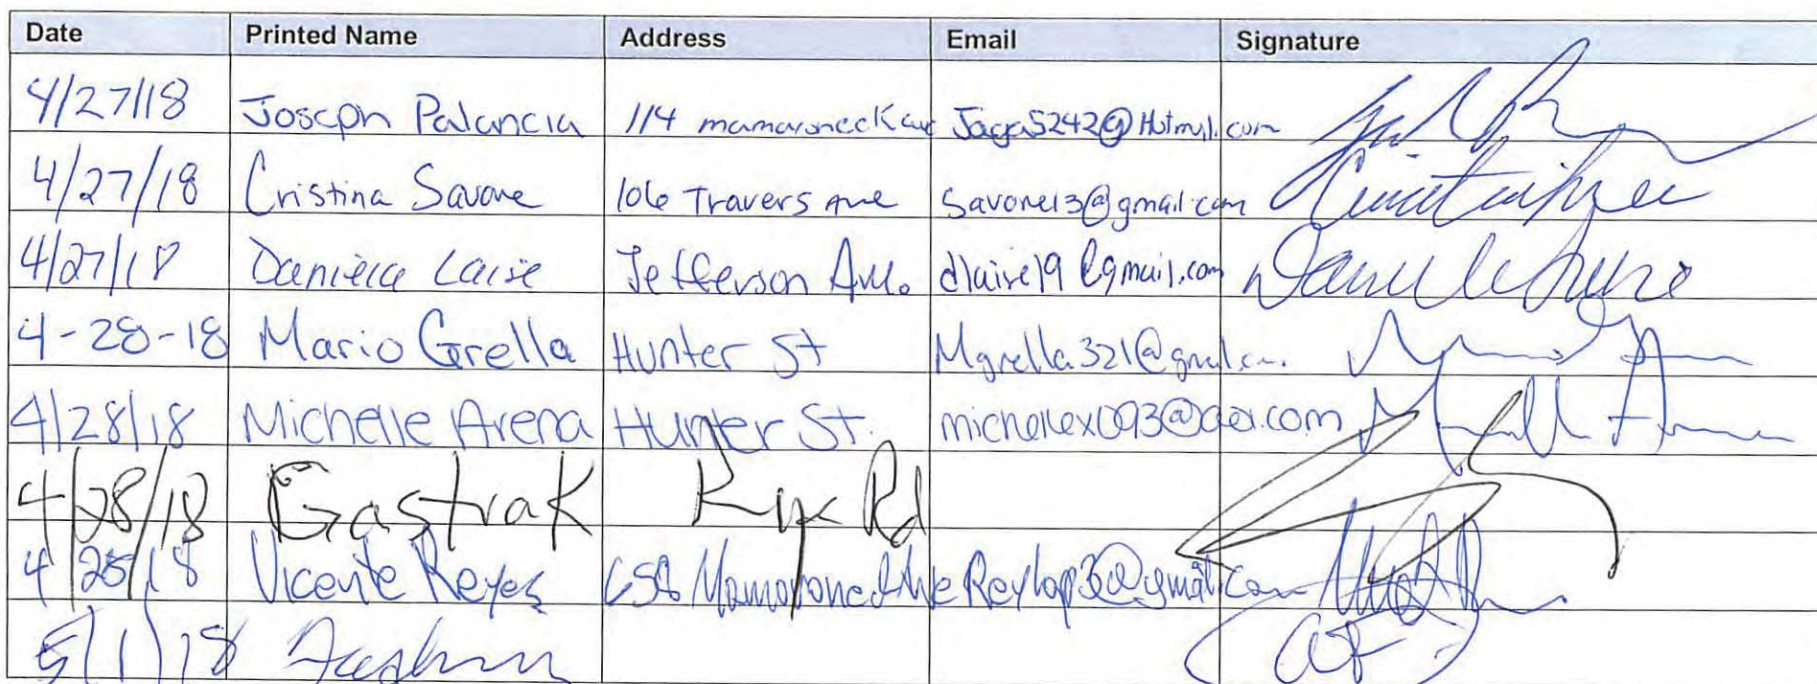 Date Printed Name Address Email Signature
4/27/18 Joseph Palancia 114 mamaroneck ave Jaga5242@Hotmail.com
4/27/18 Cristina Savone 106 Travers Ave Savone13@gmail.com
4/27/18 Daniela Laise Jefferson Ave. dlaise19@gmail.com
4-28-18 Mario Grella Hunter St Mgrella321@gmail.com
4/28/18 Michelle Arena Hunter St. michellex093@aol.com
4/28/18 Gastrak Rye Rd
4/28/18 Vicente Reyes Mamaroneck Ave Reylop3@gmail.com
5/1/18